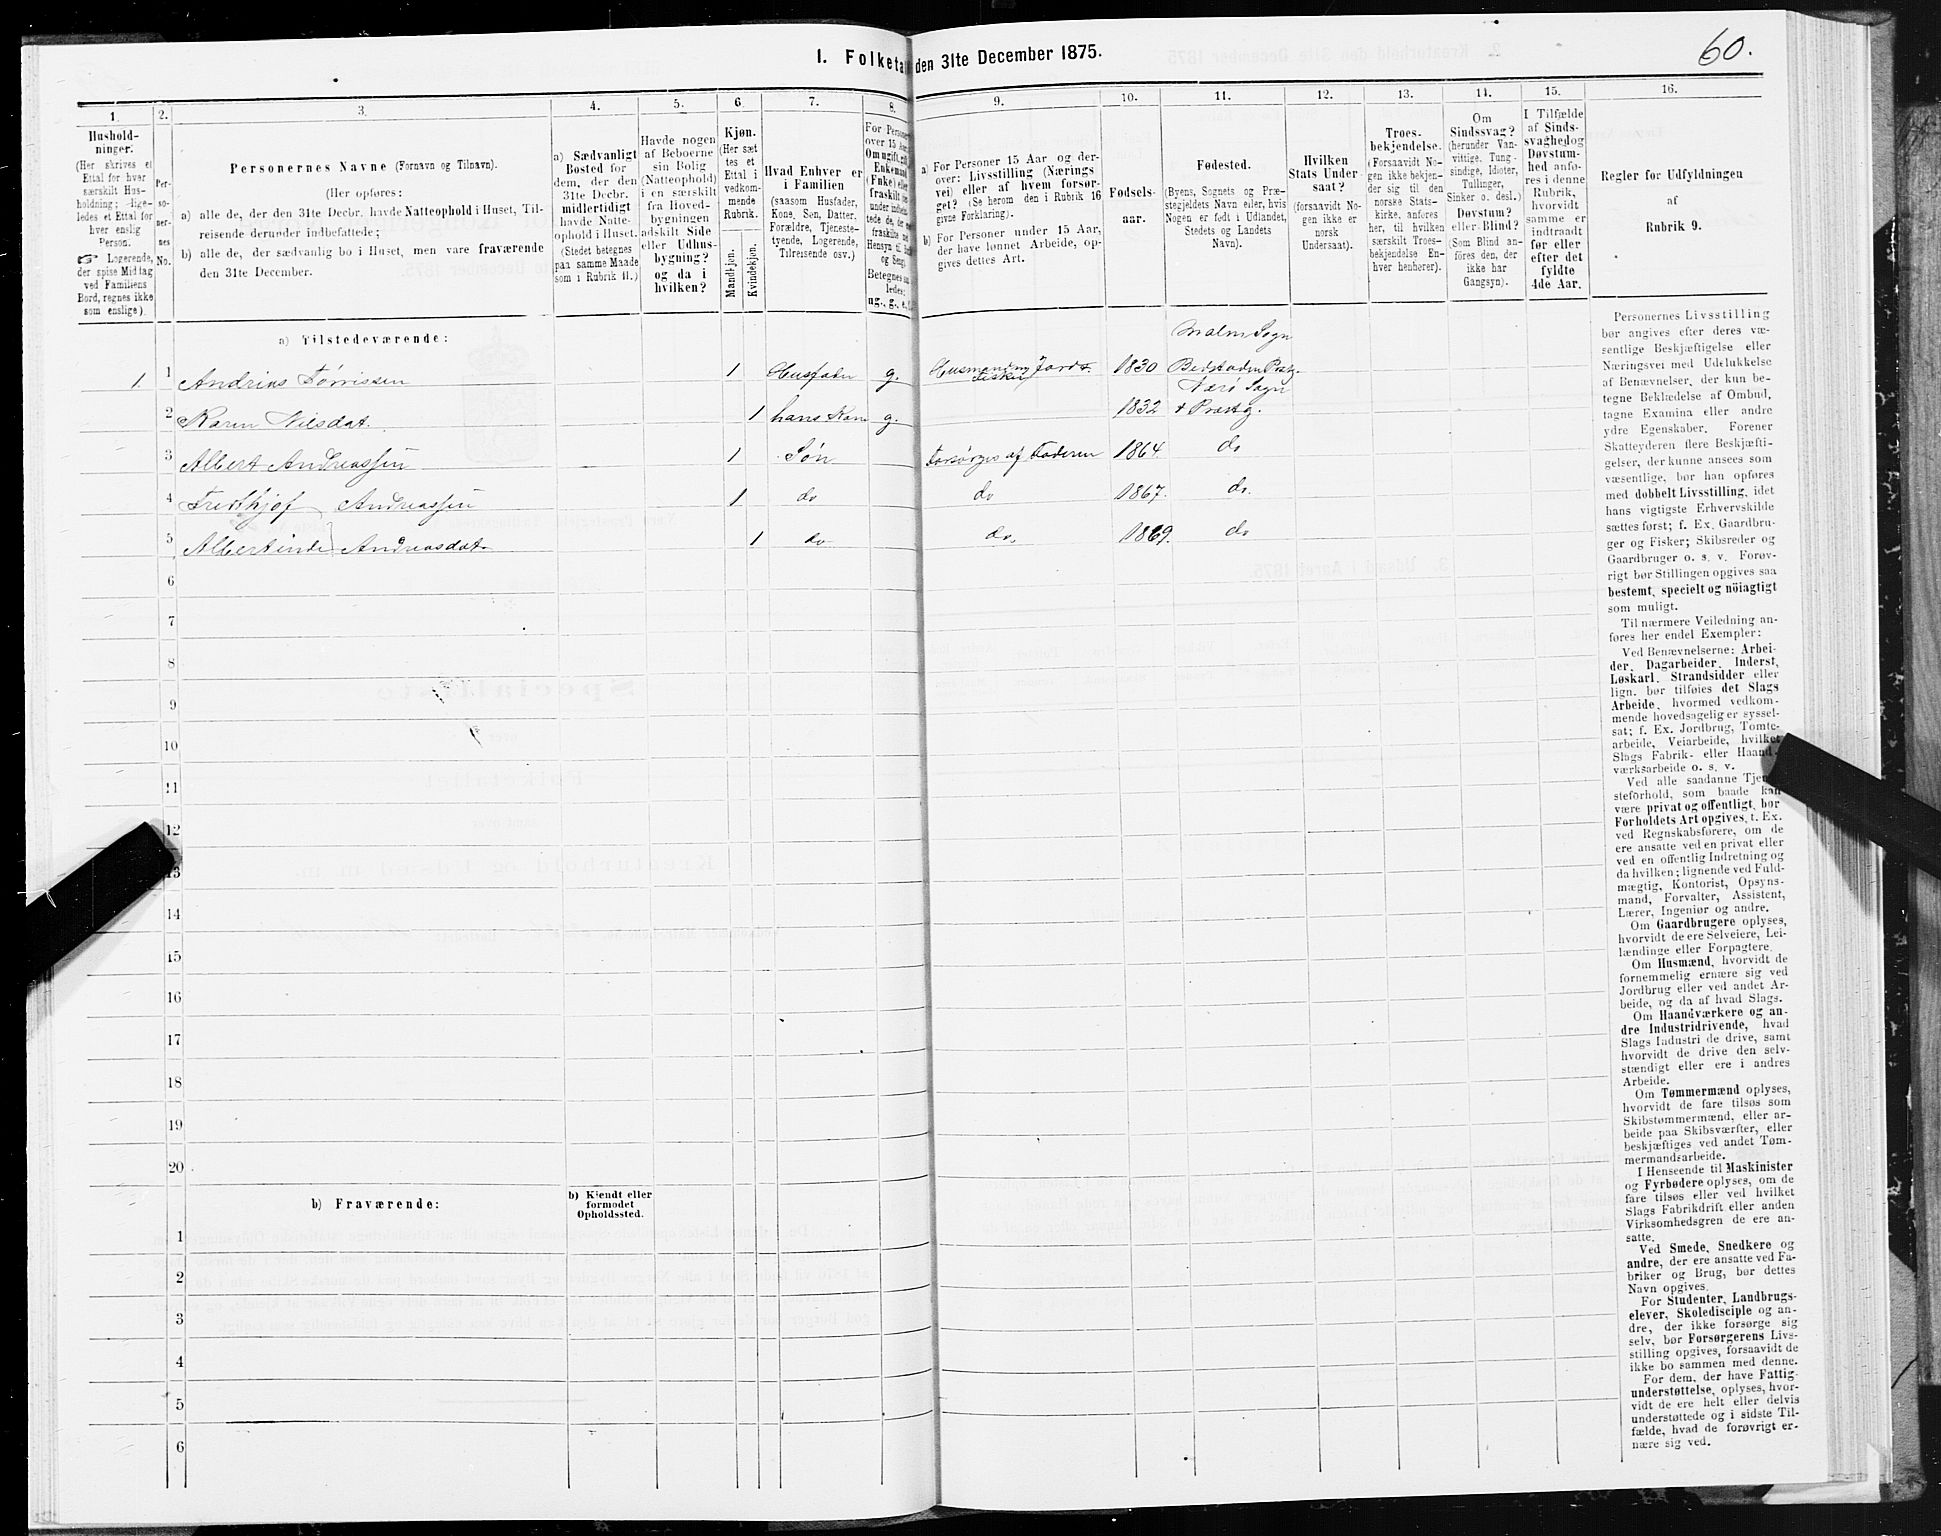 60.
1. Folketal den 31te December 1875.
1. 2. 3. 4. 5. 6. 7. 8. 9. 10. 11. 12. 13. 14. 15. 16.
Hushold-
ninger.
(Her skrives et
Ettal for hver
særskilt Hus-
holdning; lige-
ledes et Ettal for
hver enslig
Person.
☞ Logerende,
der spise Middag
ved Familiens
Bord, regnes ikke
som enslige).
Per-
so-
ner-
nes
No.
Personernes Navne (Fornavn og Tilnavn).
(Her opføres:
a) alle de, der den 31te Decbr. havde Natteophold i Huset, Til-
reisende derunder indbefattede;
b) alle de, der sædvanlig bo i Huset, men vare fraværende
den 31te December.
a) Sædvanligt
Bosted for
dem, der den
31te Decbr.
midlertidigt
havde Natte-
ophold i Huset.
(Stedet betegnes
paa samme Maade
som i Rubrik 11.)
Havde nogen
af Beboerne
sin Bolig
(Natteophold)
i en særskilt
fra Hoved-
bygningen
adskilt Side
eller Udhus-
bygning?
og da i
hvilken?
Kjøn.
(Her sæt
tes et
Ettal i
vedkom-
mende
Rubrik.
Mandkjøn.
Kvindekjøn.
Hvad Enhver er
i Familien
(saasom Husfader,
Kone, Søn, Datter,
Forældre, Tjeneste-
tyende, Logerende,
Tilreisende osv.)
For Person
over 15 Aar
Om ugift, gift
Enkemand
(Fnke) eller
fraskilt
Hensyn til
og Seng.
Betegnes saa
ledes:
ug., g., e.,
a) For Personer 15 Aar og der-
over: Livsstilling (Nærings
vei) eller af hvem forsør-
get? (Se herom den i Rubrik 16
givne Forklaring).
b) For Personer under 15 Aar,
der have lønnet Arbeide, op-
gives dettes Art.
Fødsels-
aar.
Fødested.
(Byens, Sognets og Præ-
stegjeldets Navn eller, hvis
Nogen er født i Udlandet,
Stedets og Landets
Navn).
Hvilken
Stats Under
saat?
(forsaavidt No-
gen ikke er
norsk
Undersaat).
Troes-
bekjendelse.
(Forsaavidt No-
gen ikke bekjen-
der sig til den
norske Stats-
kirke, anføres
her, til hvilken
særskilt Troes-
bekjendelse En-
hver henhører).
Om
Sindssvag?
(herunder Van-
vittige, Tung-
sindige, Idioter,
Tullinger,
Sinker o. desl.)
Døvstum?
eller Blind?
(Som Blind an-
føres den, der
ikke har
Gangsyn).
I Tilfælde
af Sinds-
svaghed og
Døvstum-
hed anfø-
res i denne
Rubrik,
hvorvidt
samme er
indtraadt
før eller
efter det
fyldte
4de Aar.
Regler for Udfyldningen
af
Rubrik 9.
a) Tilstedeværende:
Malm Sogn
1. 1 Andrias Tørrissen 1 Husfader g. Husmand m Jord & fisker 1830 Bedstaden Pstg.
Nærø Sogn
2 Karen Nilsdat. 1 hans Kone g. 1832 & Præstg.
3 Albert Andreassen 1 Søn Forsørges af Faderen 1864 do
4 Fredthjof Andreassen 1 do do 1867. do.
5 Albertinde Andreasdat. 1 do do. 1869. do
6
7
8
9
10
11
12
13
14
15
16
17
18
19
20
b) Fraværende:
b) Kjendt eller
formodet
Opholdssted.
1
2
3
4
5
6
Personernes Livsstilling
bør angives efter deres væ-
sentlige Beskjæftigelse eller
Næringsvei med Udelukkelse
af Benævnelser, der kun be-
tegne Beklædelse af Ombud,
tagne Examina eller andre
ydre Egenskaber. Forener
Skatteyderen flere Beskjæfti-
gelser, der kunne ansees som
væsentlige, bør han opføres
med dobbelt Livsstilling, idet
hans vigtigste Erhvervskilde
sættes først; f. Ex. Gaardbru-
ger og Fisker; Skibsreder og
Gaardbruger o. s. v. Forøv-
rigt bør Stillingen opgives saa
bestemt, specielt og nöiagtigt
som muligt.
Til nærmere Veiledning an-
føres her endel Exempler:
Ved Benævnelserne: Arbei-
der, Dagarbeider, Inderst,
Løskarl, Strandsidder eller
lign. bør tilføies det Slags
Arbeide, hvormed vedkom-
mende hovedsagelig er syssel-
sat; f. Ex. Jordbrug, Tomte-
arbeide, Veiarbeide, hvilket
Slags Fabrik- eller Haand-
værksarbeide o. s. v.
Ved alle saadanne Tjene-
steforhold, som baade kan
være privat og offentligt, bør
Forholdets Art opgives, t. Ex.
ved Regnskabsførere, om de
ere ansatte ved en privat eller
ved en offentlig Indretning og
da hvilken; lignende ved Fuld-
mægtig, Kontorist, Opsyns-
mand, Forvalter, Assistent,
Lærer, Ingeniør og andre.
Om Gaardbrugere oplyses,
hvorvidt de ere Selveiere, Lei-
lændinge eller Forpagtere.
Om Husmænd, hvorvidt de
fornemmelig ernære sig ved
Jordbrug eller ved andet Ar-
beide, og da af hvad Slags.
Om Haandværkere og an-
dre Industridrivende, hvad
Slags Industri de drive, samt
hvorvidt de drive den selv-
stændigt eller ere i andres
Arbeide.
Om Tømmermænd oplyses,
hvorvidt de fare tilsøs som
Skibstømmermænd, eller ar-
beide paa Skibsværfter, eller
beskjæftiges ved andet Tøm-
mermandsarbeide.
I Henseende til Maskinister
og Fyrbødere oplyses, om de
fare tilsøs eller ved hvilket
Slags Fabrikdrift eller anden
Virksomhedsgren de ere an-
satte.
Ved Smede, Snedkere og
andre, der ere ansatte ved Fa-
briker og Brug, bør dettes
Navn opgives.
For Studenter, Landbrugs-
elever, Skoledisciple og an-
dre, der ikke forsørge sig
selv, bør Forsørgerens Livs-
stilling opgives, forsaavidt de
ikke bo sammen med denne.
For dem, der have Fattig-
understøttelse, oplyses, hvor-
vidt de ere helt eller delvis
understøttede og i sidste Til-
fælde, hvad de forøvrigt er-
nære sig ved.